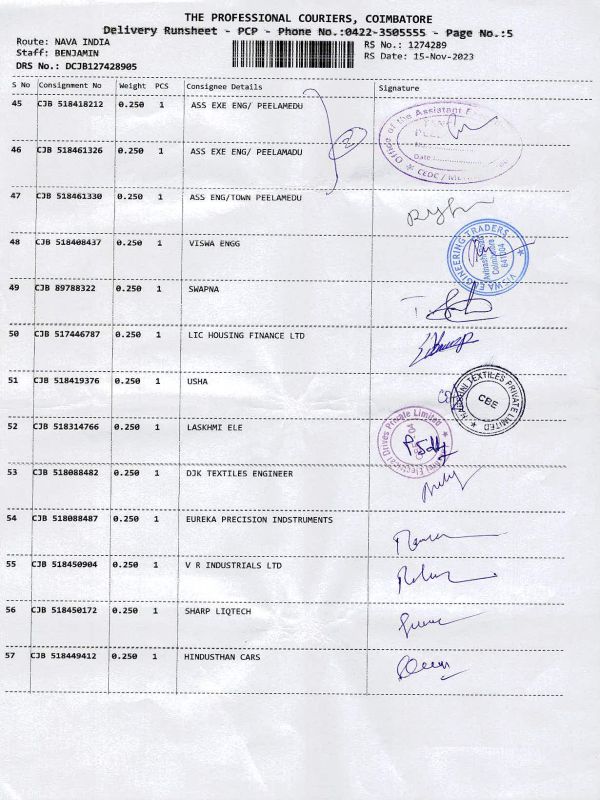 THE PROFESSIONAL COURIERS, COIMBATORE
Delivery Runsheet - PCP - Phone No.:0422-3505555 - Page No.:5
Route: NAVA INDIA
Staff: BENJAMIN
DRS No.: DCJB127428905
RS No.: 1274289
RS Date: 15-Nov-2023
S No Consignment No Weight PCS Consignee Details Signature
45 CJB 518418212 0.250 1 ASS EXE ENG/ PEELAMEDU
Office of the Assistant
Date
CEDC /
2
46 CJB 518461326 0.250 1 ASS EXE ENG/ PEELAMADU
47 CJB 518461330 0.250 1 ASS ENG/TOWN PEELAMEDU
48 CJB 518408437 0.250 1 VISWA ENGG
VISWA ENGINEERING TRADERS
Coimbatore
641004
49 CJB 89788322 0.250 1 SWAPNA
50 CJB 517446787 0.250 1 LIC HOUSING FINANCE LTD
51 CJB 518419376 0.250 1 USHA
TEXTILES PRIVATE LIMITED
CBE
52 CJB 518314766 0.250 1 LASKHMI ELE
Electrical Drives Private Limited
53 CJB 518088482 0.250 1 DJK TEXTILES ENGINEER
54 CJB 518088487 0.250 1 EUREKA PRECISION INDSTRUMENTS
55 CJB 518450904 0.250 1 V R INDUSTRIALS LTD
56 CJB 518450172 0.250 1 SHARP LIQTECH
57 CJB 518449412 0.250 1 HINDUSTHAN CARS